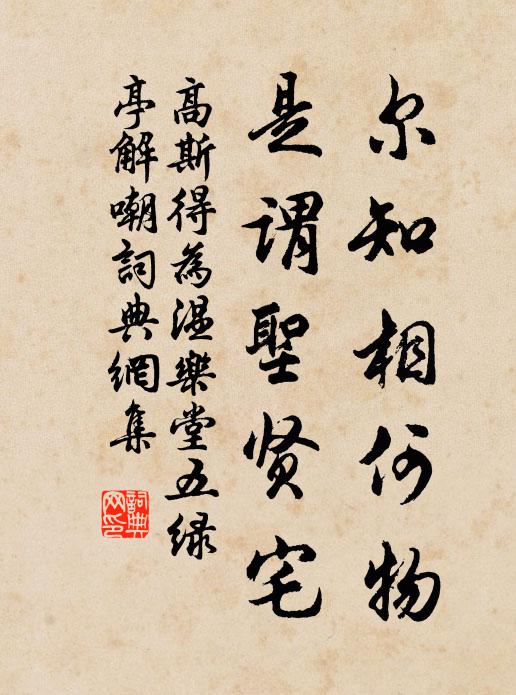 尔知相何物
是谓聖贤宅
高斯得為温樂堂五緑
亭解嘲詞典網集
詞典
网印